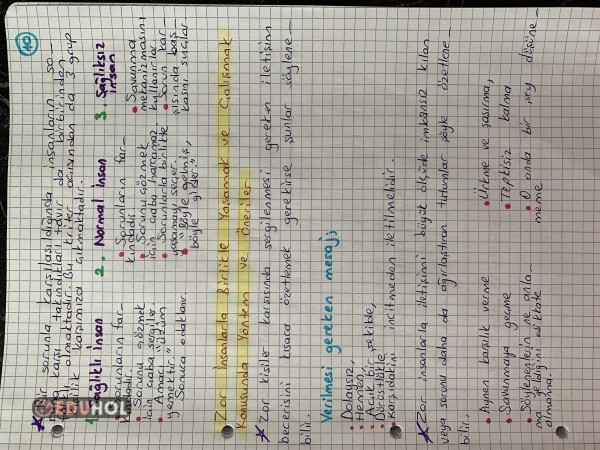 10
* Bir sorunla karşılaşıldığında insanların so-
karşı takındıkları tavır da birbirinden
olmaktadır. Bu kriter açısından da 3 grup
kişilik karşımıza çıkmaktadır.
1. Sağlıklı İnsan
• Sorunların far-
kındadır.
• Sorunu çözmek
için çaba sergiler.
• Amacı "üzüm
yemektir."
Sonuca odaklanır.
2. Normal İnsan
• Sorunların far-
kındadır.
• Sorunu çözmek
için çaba harcamaz.
• Sorunlarla birlikte
yaşamayı seçer.
• "Böyle gelmiş,
böyle gider."
3. Sağlıksız
İnsan
• Savunma
mekanizmasını
kullanırlar.
• Sorun kar-
şısında baş-
kasını suçlar
Zor İnsanlarla Birlikte Yaşamak ve Çalışmak
Konusunda Yöntem ve Öneriler
* Zor kişiler karşısında sergilenmesi gereken iletişim
becerisini kısaca özetlemek gerekirse şunlar söylene-
bilir.
Verilmesi gereken mesajı
• Dolaysız,
• Hemen,
• Açık bir şekilde,
• Dürüstlükle
• Karşıdakini incitmeden iletilmelidir.
* Zor insanlarla iletişimi büyük ölçüde imkansız kılan
veya sorunu daha da ağırlaştıran tutumlar şöyle özetlene-
bilir.
• Aynen karşılık verme
• Savunmaya geçme
• Söylenenlerin ne anla
ma geldiğini dikkate
almama,
• Ürkme ve şaşırma,
• Tepkisiz kalma
• O anda bir şey düşüne-
meme
EDUHOL